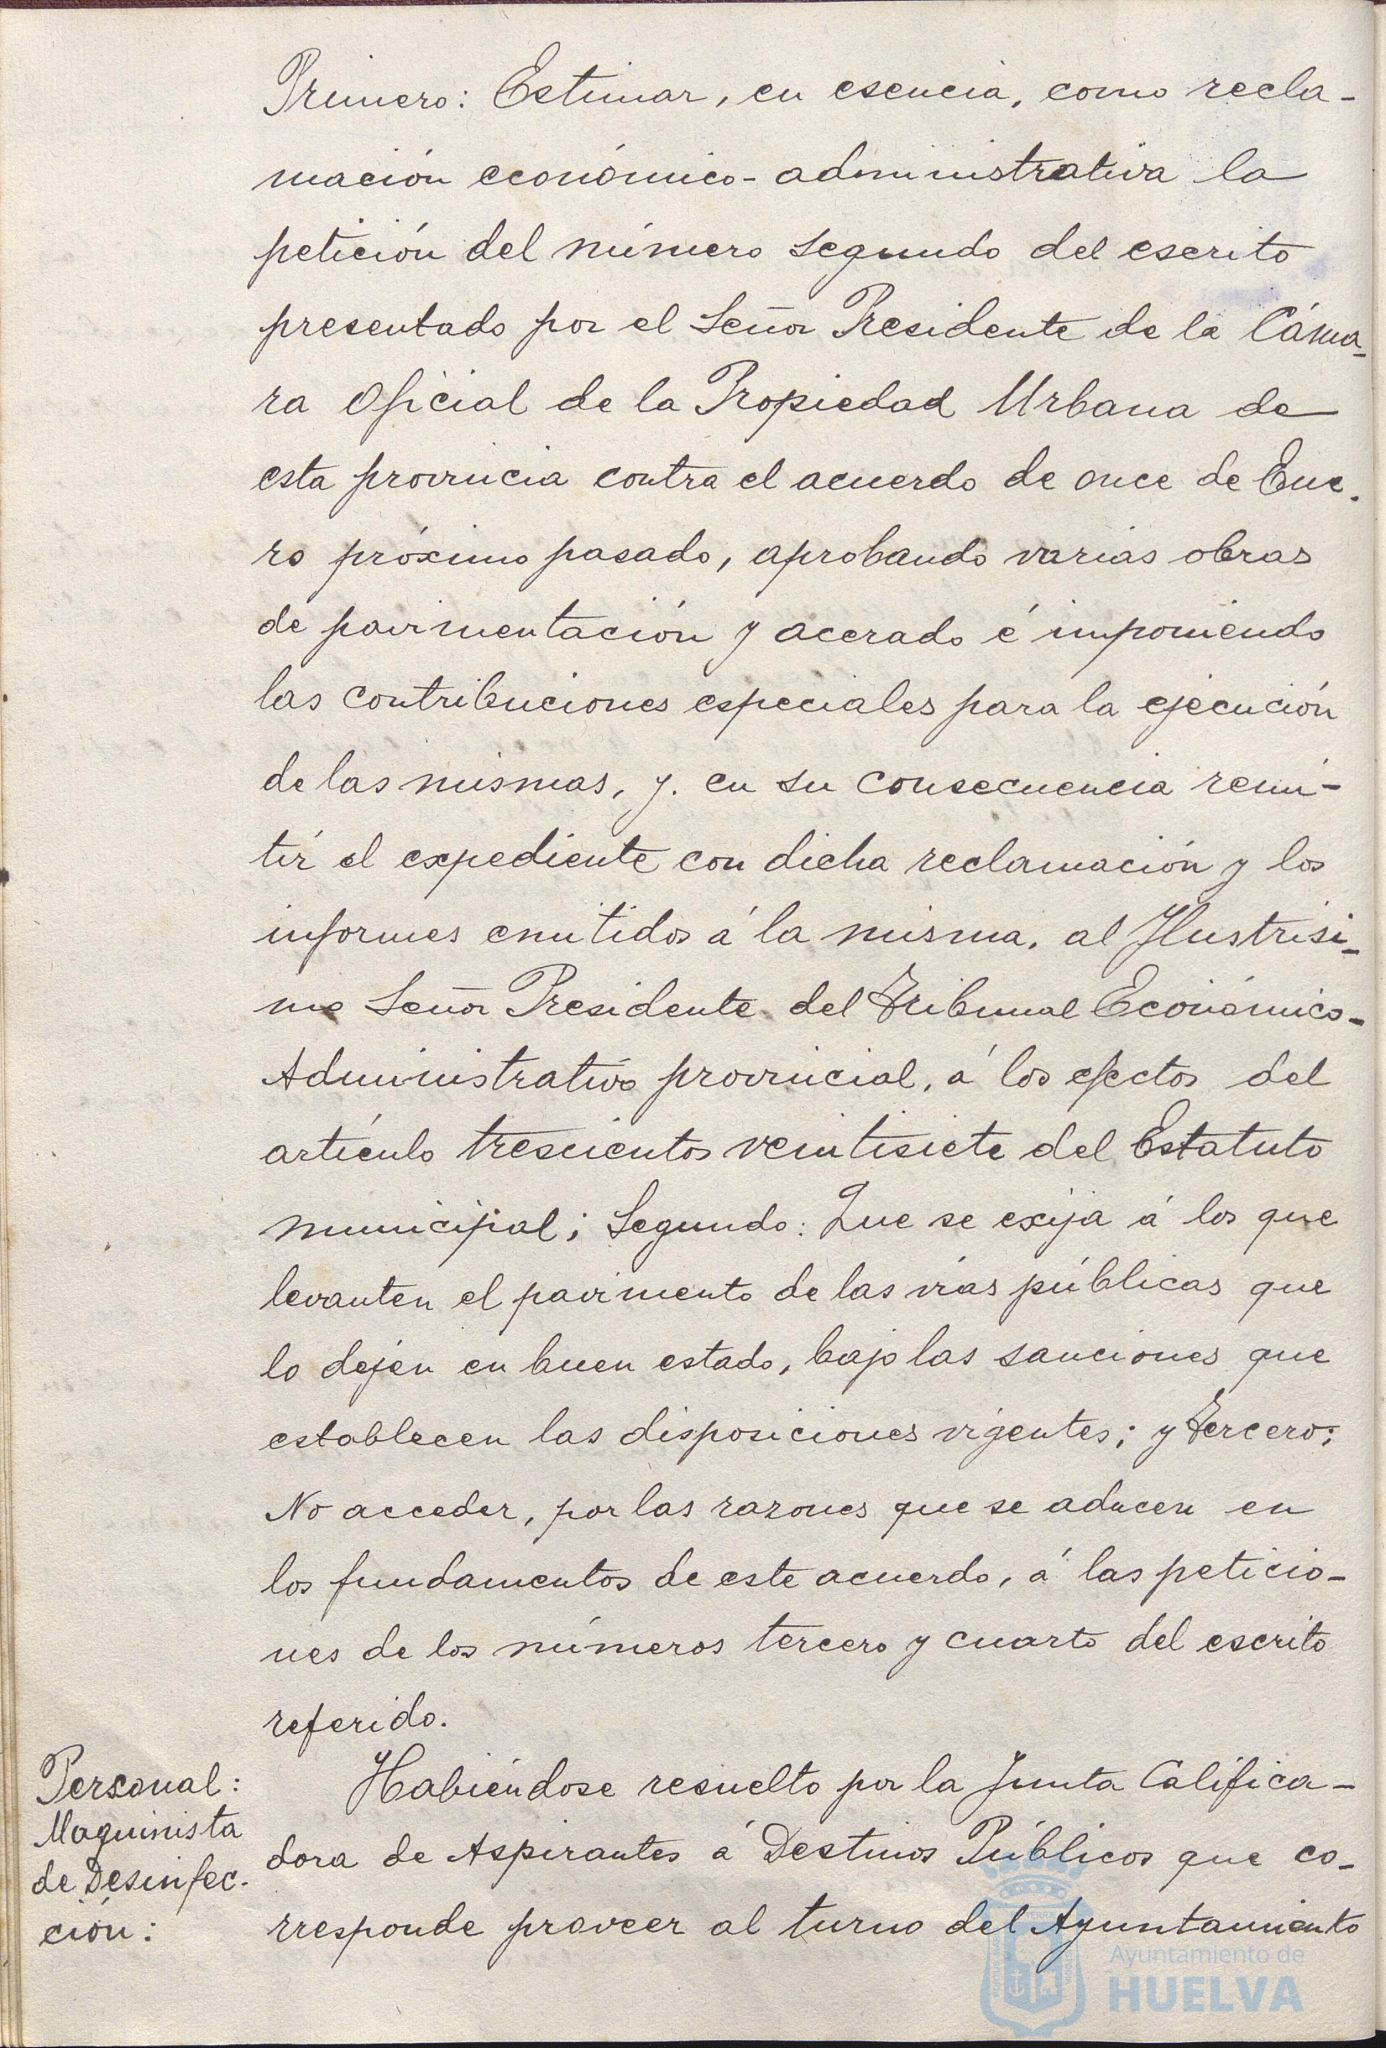 Primero: Estimar, en esencia, como recla-
mación económico-administrativa la
petición del número segundo del escrito
presentado por el Señor Presidente de la Cáma-
ra Oficial de la Propiedad Urbana de
esta provincia contra el acuerdo de once de Ene-
ro próximo pasado, aprobando varias obras
de pavimentación y acerado é imponiendo
las contribuciones especiales para la ejecución
de las mismas, y. en su consecuencia remi-
tir el expediente con dicha reclamación y los
informes emitidos á la misma, al Ilustrísi-
mo Señor Presidente del Tribunal Económico-
Administrativo provincial, á los efectos del
artículo trescientos veintisiete del Estatuto
municipal; Segundo: Que se exija á los que
levanten el pavimento de las vías públicas que
lo dejen en buen estado, bajo las sanciones que
establecen las disposiciones vigentes; y Tercero:
No acceder, por las razones que se aducen en
los fundamentos de este acuerdo, á las peticio-
nes de los números tercero y cuarto del escrito
referido.
Personal:
Maquinista
de Desinfec-
ción:
Habiéndose resuelto por la Junta Califica-
dora de Aspirantes á Destinos Públicos que co-
rresponde proveer al turno del Ayuntamiento
Ayuntamiento de
HUELVA